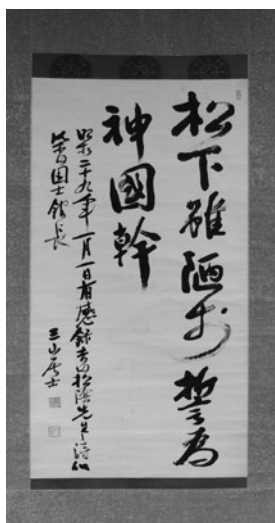 松下雖陋村誓為
神國幹
昭和二十九年一月一日有感録吉田松陰先生語似
柴田国士舘長
三山居士